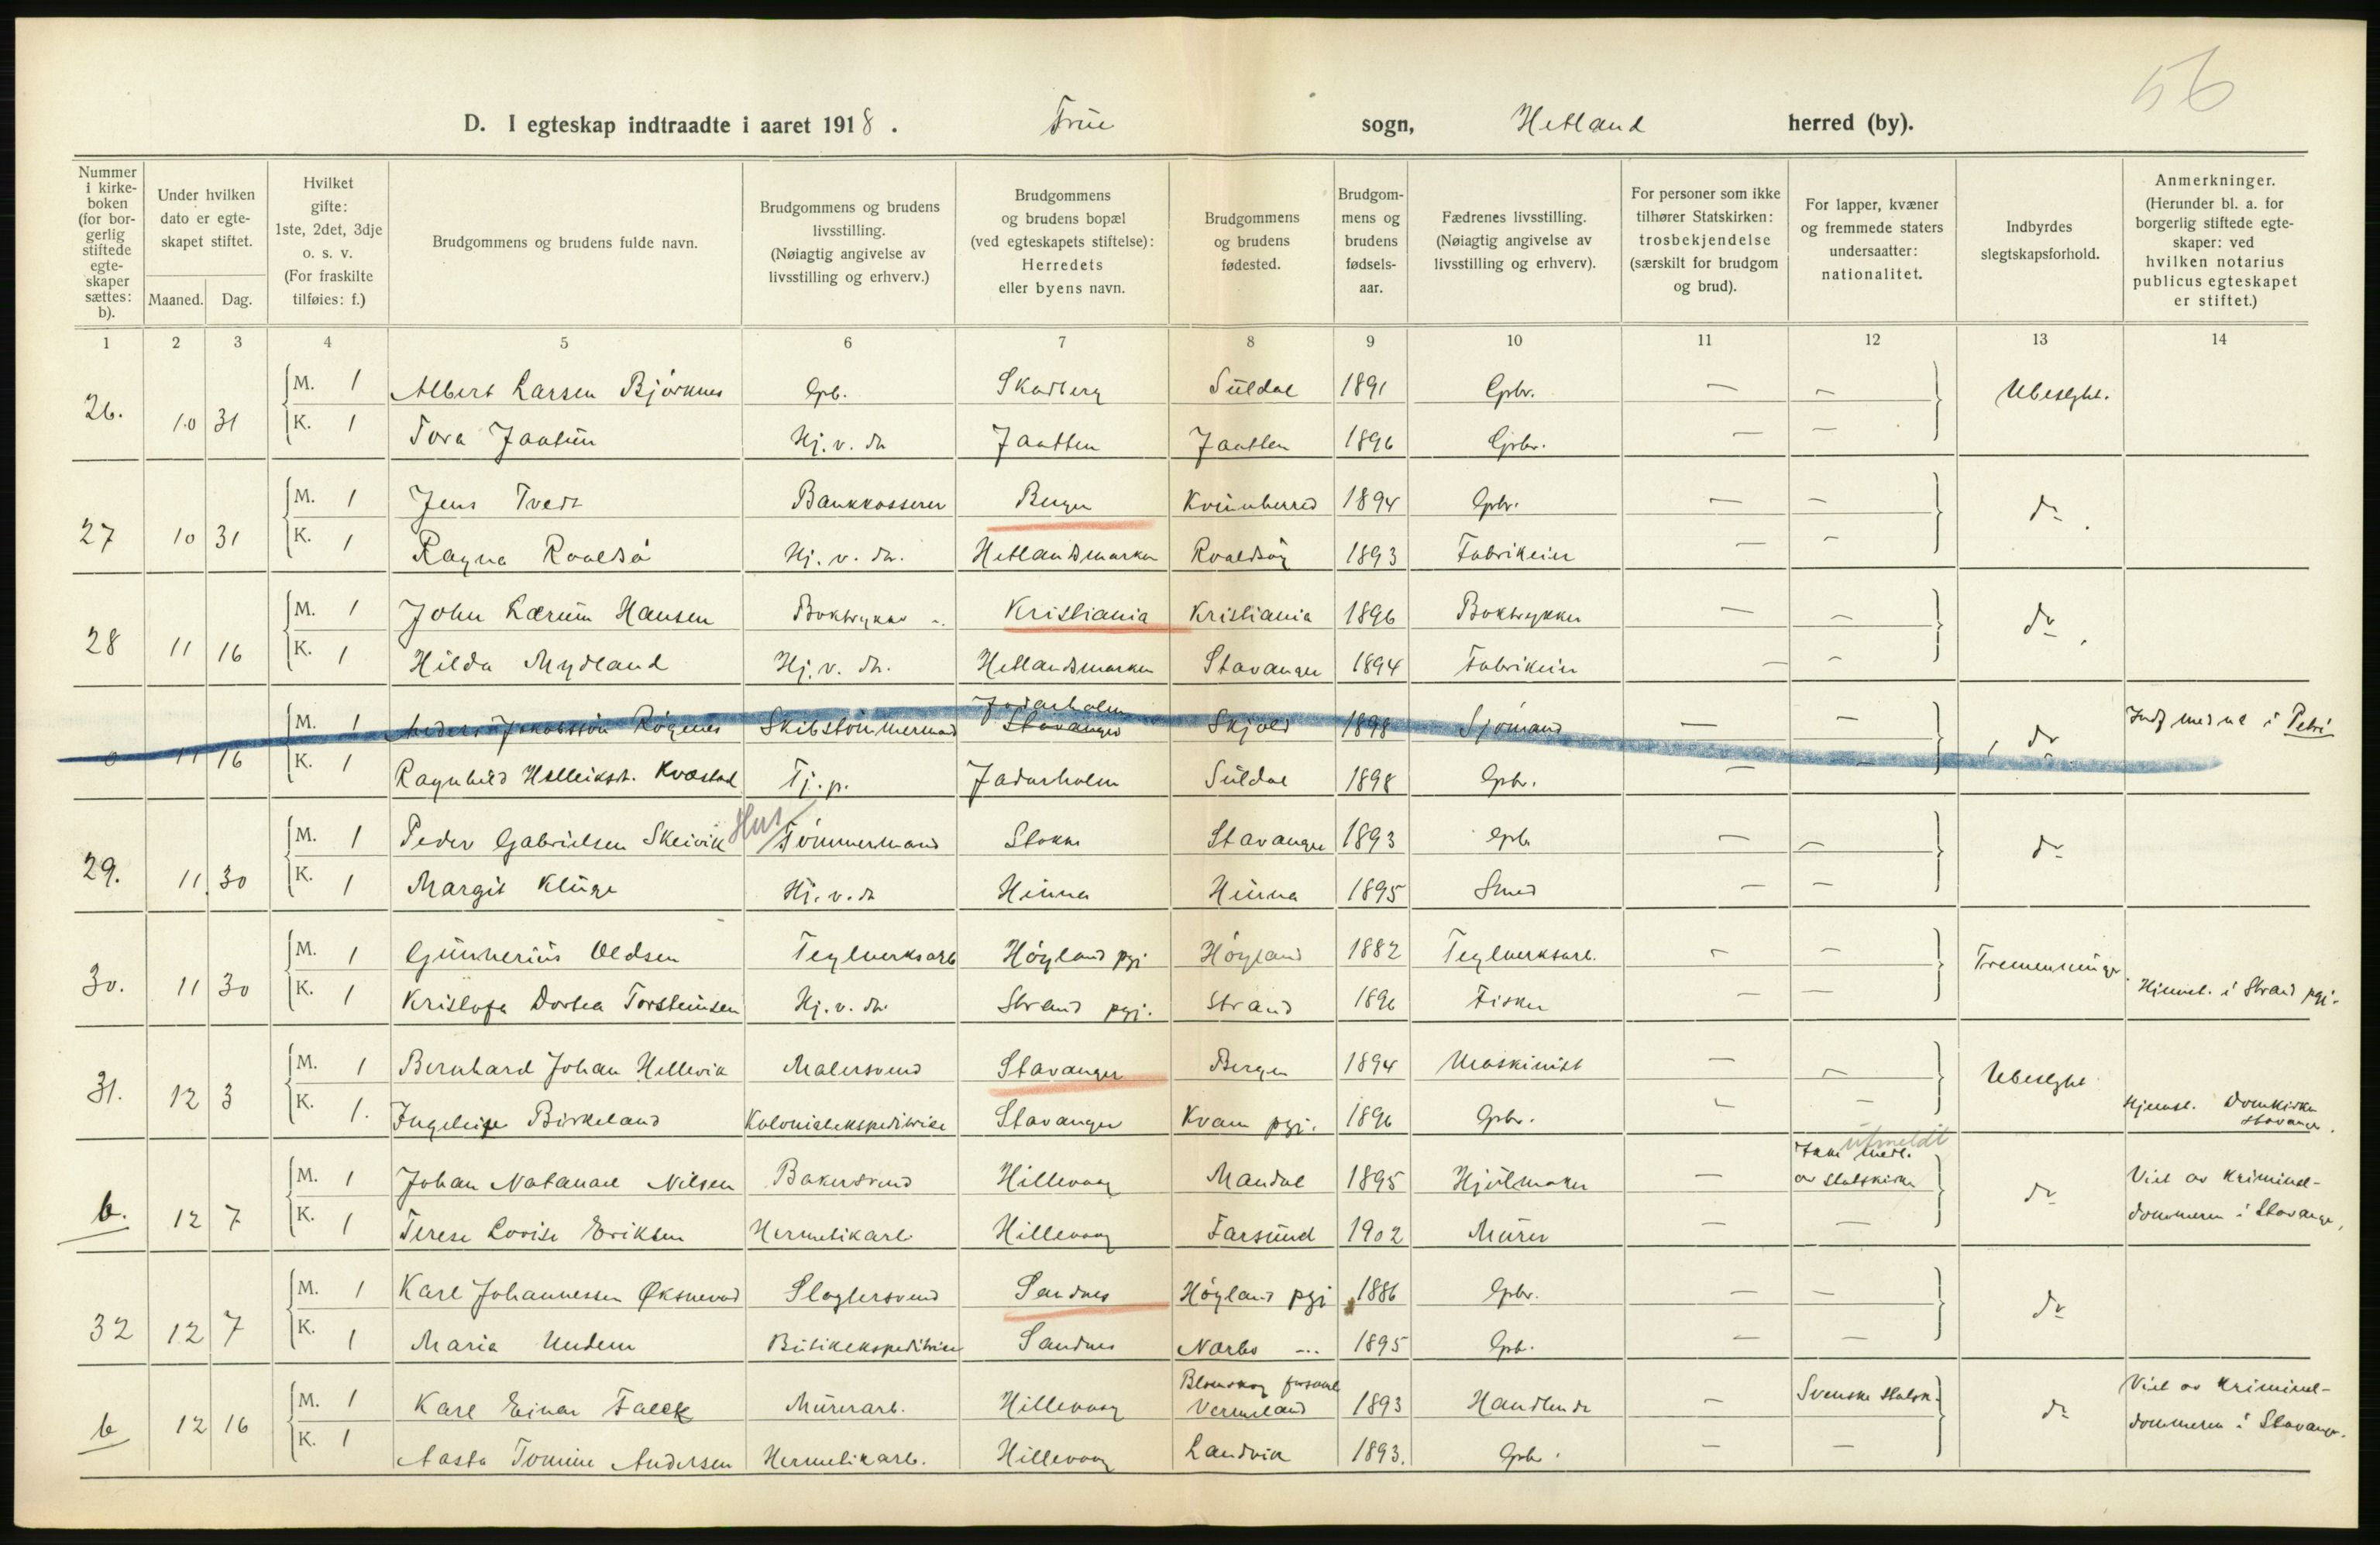 56
D. I egteskap indtraadte i aaret 1918. Frue sogn, Hetland herred (by).
Nummer i kirkeboken (for borgerlig stiftede egteskaper sættes: b).
Under hvilken dato er egteskapet stiftet.
Maaned. Dag.
Hvilket gifte: 1ste, 2det, 3dje o. s. v. (For fraskilte tilføies: f.)
Brudgommens og brudens fulde navn.
Brudgommens og brudens livsstilling. (Nøiagtig angivelse av livsstilling og erhverv.)
Brudgommens og brudens bopæl (ved egteskapets stiftelse): Herredets eller byens navn.
Brudgommens og brudens fødested.
Brudgommens og brudens fødselsaar.
Fædrenes livsstilling. (Nøiagtig angivelse av livsstilling og erhverv).
For personer som ikke tilhører Statskirken: trosbekjendelse (særskilt for brudgom og brud).
For lapper, kvæner og fremmede staters undersaatter: nationalitet.
Indbyrdes slegtskapsforhold.
Anmerkninger. (Herunder bl. a. for borgerlig stiftede egteskaper: ved hvilken notarius publicus egteskapet er stiftet.)
1 2 3 4 5 6 7 8 9 10 11 12 13 14
26. 10 31 M. 1 Albert Larsen Björknes Gpb. Skadberg Suldal 1891 Gpbr. — — Ubeslght.
K. 1 Tora Jaatun Hj. v. dr Jaatten Jaatten 1896 Gpbr. — —
27 10 31 M. 1 Jens Tvedt Bankkasserer Bergen Kvinnherred 1894 Gpbr. — — do.
K. 1 Ragna Roaldsö Hj. v. dr. Hetlandsmarken Roaldsöy 1893 Fabrikeier — —
28 11 16 M. 1 John Larum Hansen Boktrykker Kristiania Kristiania 1896 Boktrykker — — do.
K. 1 Hilda Mydland Hj. v. dr. Hetlandsmarken Stavanger 1894 Fabrikeier — —
0 11 16 M. 1 Jakobssön Rögenes Skibstömmermand Jadarholm Stavanger Skjold 1898 Sjömand — — do Indf med no i Petri
K. 1 Ragnhild Helleiksdt. Kvæstad Tj. p. Jadarholm Suldal 1898 Gpbr. — —
29. 11 30 M. 1 Peder Gabrielsen Skeivik Hus/Tömmermand Stokka Stavanger 1893 Gpb — — do
K. 1 Margit Kluge Hj. v. dr Hinna Hinna 1895 Smed — —
30. 11 30 M. 1 Gunnerius Oldsen Teglverksarb Höyland pgj Höyland 1882 Teglverksarb. — — Tremenninger.
K. 1 Kristofa Dortea Torsteinsen Hj. v. dr. Strand pgj. Strand 1896 Fisker — — Hjemst. i Strand pgj.
31. 12 3 M. 1 Bernhard Johan Hellevik Malersvend Stavanger Bergen 1894 Maskinist — — Ubeslght
K. 1. Ingeleife Birkeland Kolonialekspeditrise Stavanger Kvam pgj. 1896 Gpbr. — — Hjemst. Domkirken Stavanger.
b. 12 7 M. 1 Johan Natanael Nilsen Bakersvend Hillevaag Mandal 1895 Hjulmaker — utmeldt av Statskirken do Viet av Kriminal-
K. 1 Terese Lovise Eriksen Hermetikarb. Hillevaag Farsund 1902 Murer — — dommeren i Stavanger.
32 12 7 M. 1 Karl Johannessen Øksnevad Slagtersvend Sandnes Höyland pgj 1886 Gpbr. — — do
K. 1 Maria Undem Butikekspeditrise Sandnes Nærbø 1895 Gpb. — —
b 12 16 M. 1 Karl Einar Falck Murerarb. Hillevaag Blomskog Vermeland 1893 Handlende — Svenske Statsk. do Viet av Kriminal-
K. 1 Aasta Tomine Andersen Hermetikarb. Hillevaag Landvik 1893. Gpbr. — — dommeren i Stavanger.